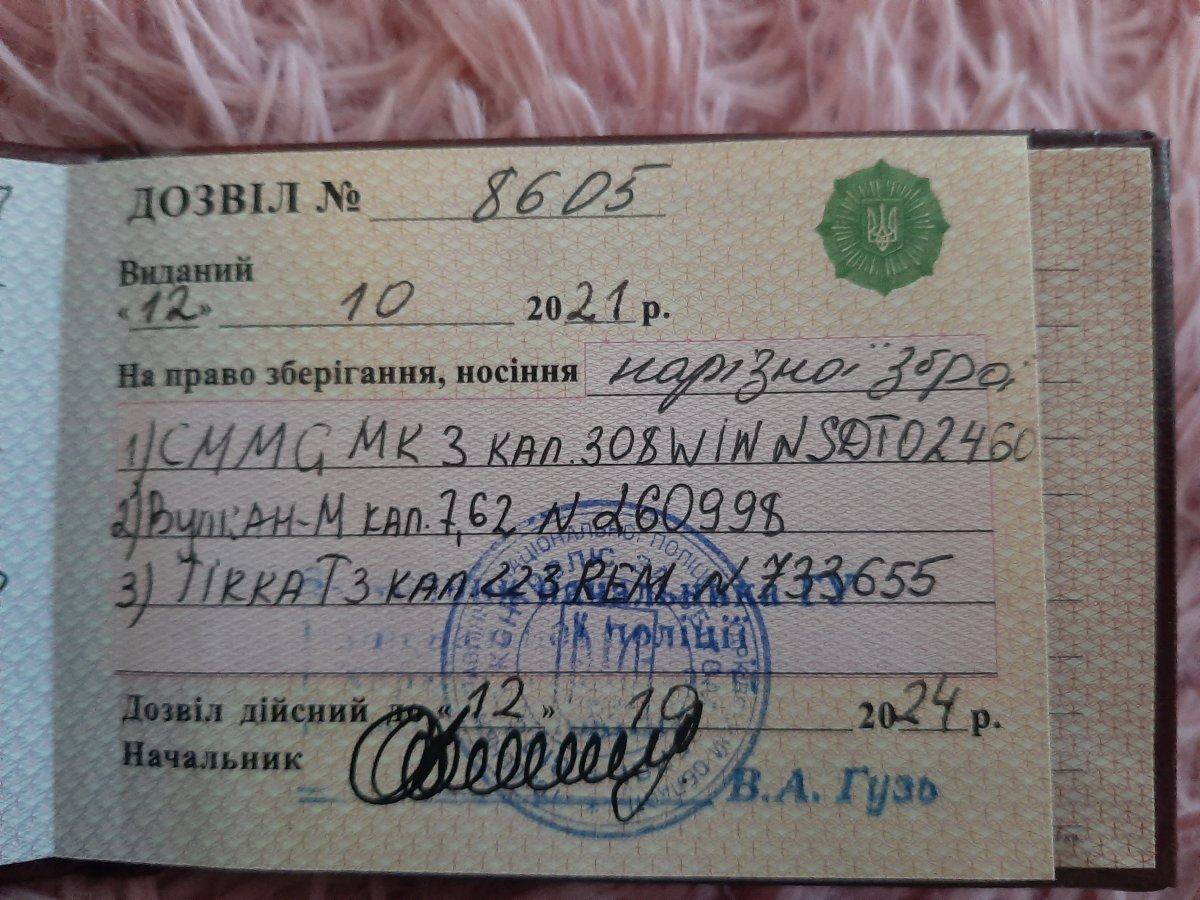 ДОЗВІЛ № 8605
Виданий
«12» 10 2021 р.
На право зберігання, носіння нарізної зброї
1) CMMG MK 3 КАЛ. 308 WIN N SDT02460
2) Вулкан-М КАЛ. 7,62 N 260998
3) ТІККА Т3 КАЛ. 223 REM N 733655
поліції
Дозвіл дійсний до «12» 10 2024 р.
Начальник
В.А. Гузь